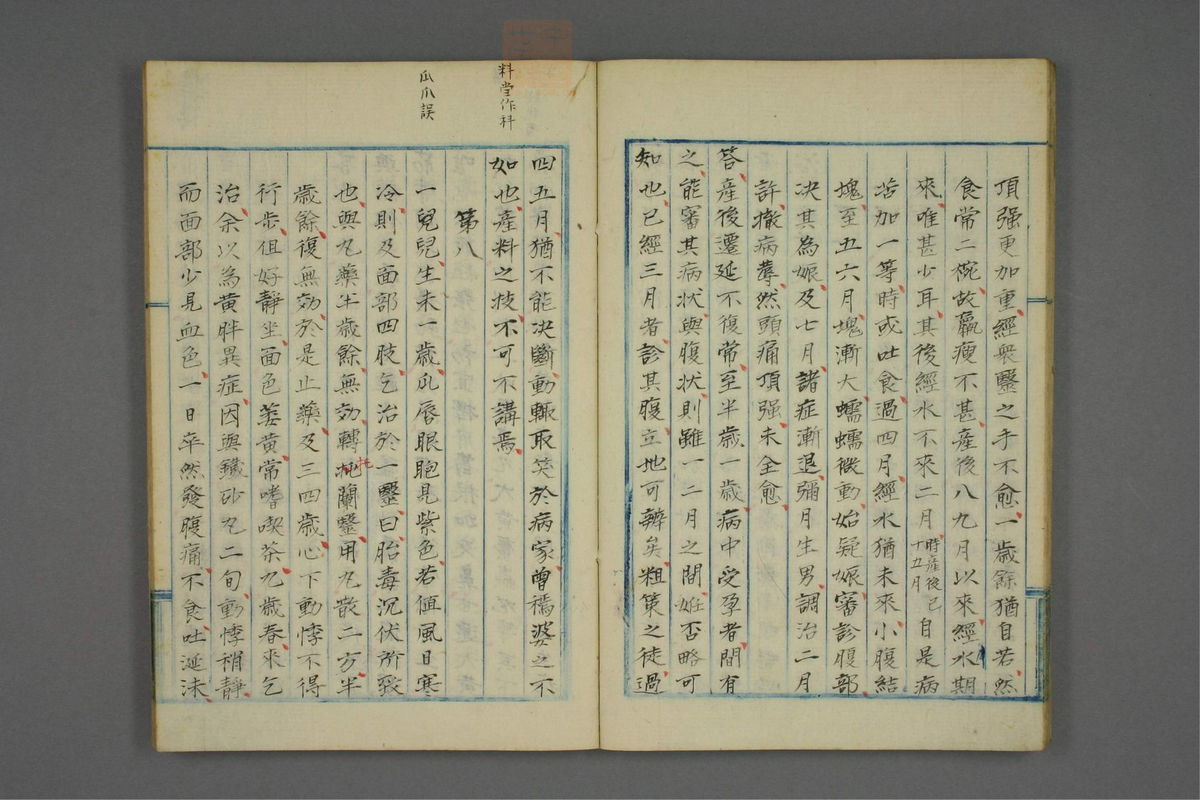 頂强更加重經衆醫之手不愈一歲餘猶自若然
食常二椀故羸瘦不甚產後八九月以來經水期
來唯甚少耳其後經水不來二月時產後已十五月自是病
苦加一等時或吐食過四月經水猶未來小腹結
塊至五六月塊漸大蠕蠕微動始疑娠審診腹部
决其為娠及七月諸症漸退彌月生男調治二月
許撤病蓐然頭痛頂强未全愈
答產後遷延不復常至半歲一歲病中受孕者間有
之能審其病状與腹状則雖一二月之間妊否略可
知也已經三月者診其腹立地可辨矣粗策之徒過
四五月猶不能决斷動輒取笑於病家曾穩婆之不
如也產料之技不可不講焉
第八
一兒兒生未一歲爪唇眼胞見紫色若值風日寒
冷則及面部四肢乞治於一醫曰胎毒沉伏所致
也與丸藥半歲餘無効轉托蘭醫用丸散二方半
歲餘復無効於是止藥及三四歲心下動悸不得
行步但好靜坐面色萎黄常嗜喫茶九歲春來乞
治余以為黄胖異症因與鐵砂丸二旬動悸稍靜
而面部少見血色一日卒然發腹痛不食吐涎沫
料当作科
瓜爪誤